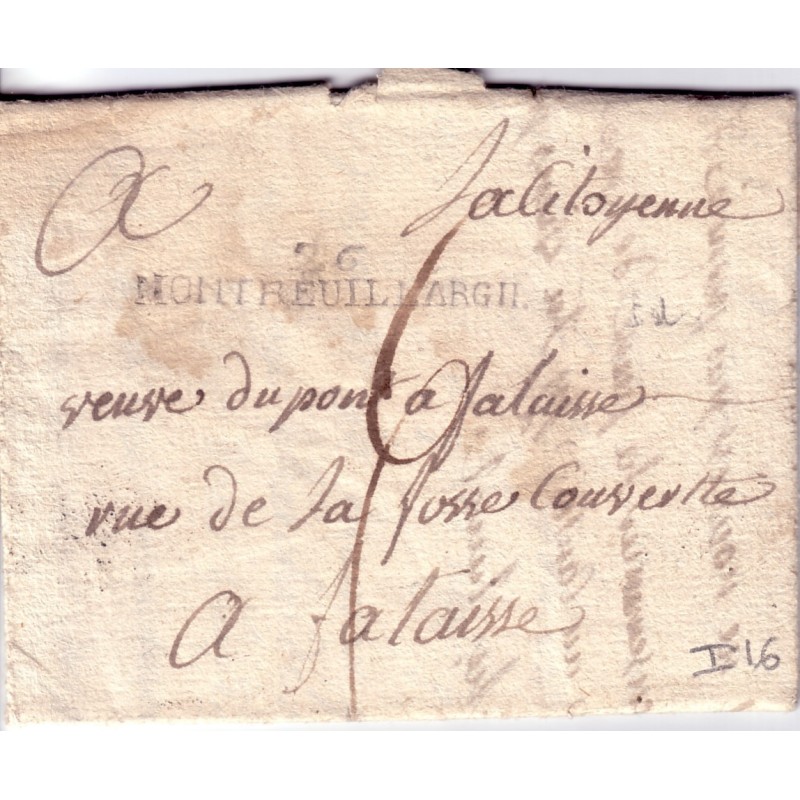 A la Citoyenne
26
MONTREUIL L'ARGIL.
veuve dupont a falaisse
rue de la fosse Couvertte
A falaisse
6
I 16